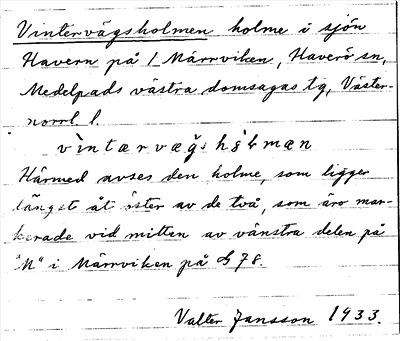 Vintervägsholmen holme i sjön
Havern på / Märrviken, Haverö sn,
Medelpads västra domsagas tg, Väster-
norrl. l.
vìntærvægshòlmæn
Härmed avses den holme, som ligger
längst åt öster av de två, som äro mar-
kerade vid mitten av vänstra delen på
"M" i Märrviken på G 78.
Valter Jansson 1933.